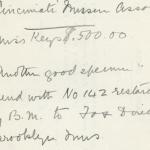 Cincinnati Museum Asso
Miss Keys $.500.00
Another good specimen "
send with No 142
y B.M. to Fox David
Brooklyn Mus